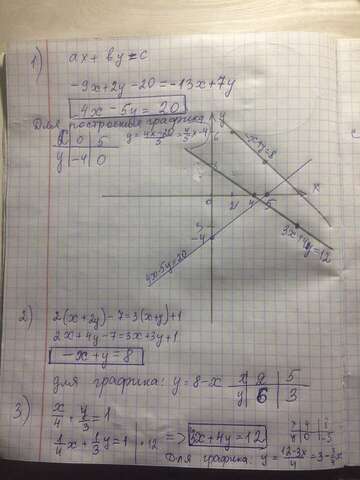 1) ax + by = c
-9x+2y-20=-13x+7y
4x-5y=20
Для построения графика
x 0 5
y -4 0
y
6
-x+y=8
x
0 2 4 5
-4
3x+4y=12
4x-5y=20
2) 2(x+2y)-7=3(x+y)+1
2x+4y-7=3x+3y+1
-x+y=8
для графика: y=8-x
x 2 5
y 6 3
3) x/4 + y/3 = 1
1/4x + 1/3y = 1 | ·12 => 3x+4y=12
Для графика: y =